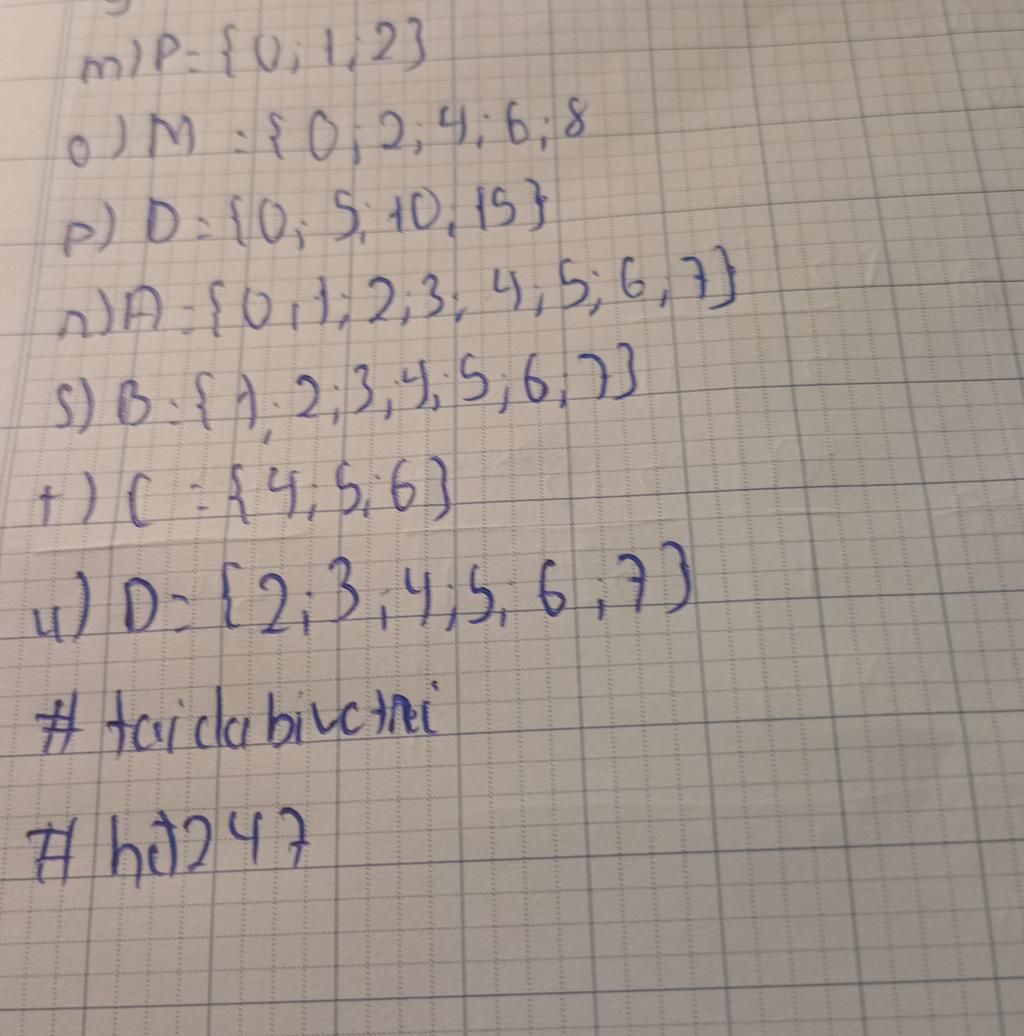 m) P = {0; 1; 2}
o) M = {0; 2; 4; 6; 8
p) D = {0; 5; 10; 15}
r) A = {0; 1; 2; 3; 4; 5; 6; 7}
s) B = {1; 2; 3; 4; 5; 6; 7}
t) C = {4; 5; 6}
u) D = {2; 3; 4; 5; 6; 7}
#
# hd247